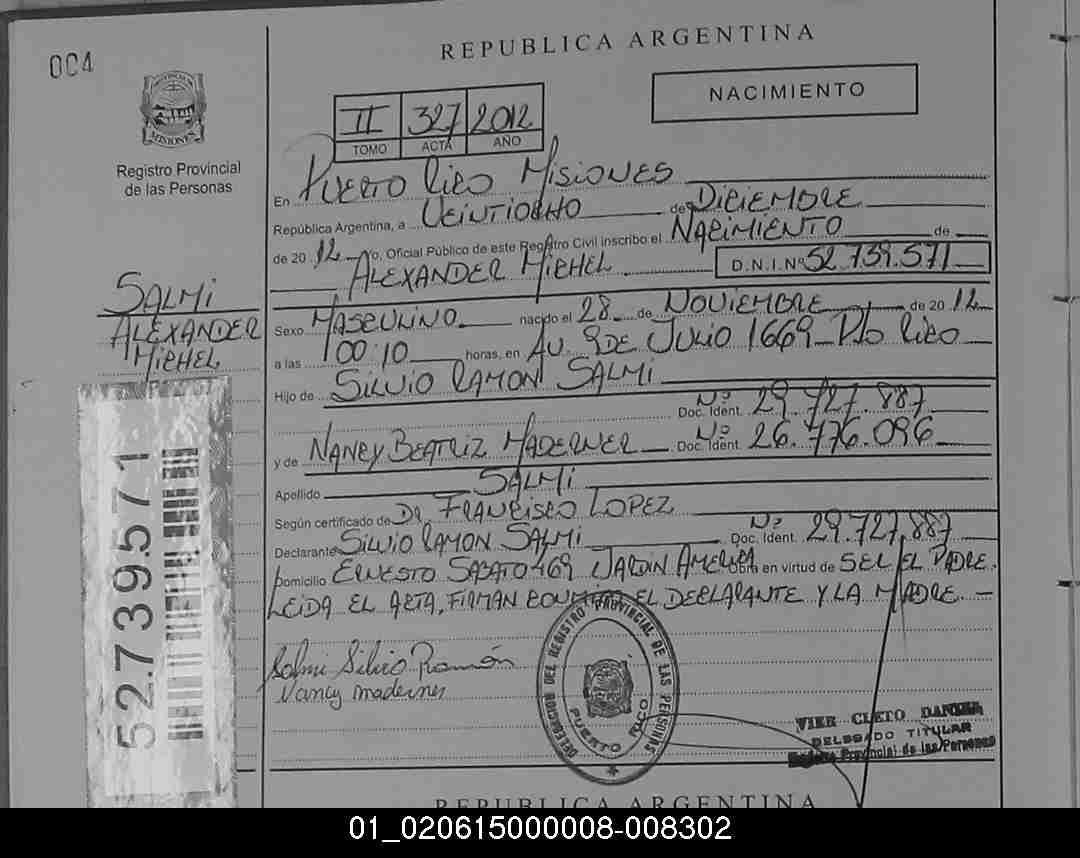 004
REPUBLICA ARGENTINA
NACIMIENTO
PROVINCIA DE
MISIONES
Registro Provincial
de las Personas
II 327 2012
TOMO ACTA AÑO
En PUERTO RICO MISIONES
República Argentina, a VEINTIOCHO de DICIEMBRE
de 20 12 yo, Oficial Público de este Registro Civil inscribo el NACIMIENTO de
ALEXANDER MICHEL D.N.I.Nº 52.739.571
SALMI
ALEXANDER
MICHEL
Sexo MASCULINO nacido el 28 de NOVIEMBRE de 20 12
a las 00:10 horas, en AV. 9 DE JULIO 1669 Pto RICO
Hijo de SILVIO RAMON SALMI
Doc. Ident. Nº 29.727.887
y de NANCY BEATRIZ MADERNER Doc. Ident. Nº 26.776.096
Apellido SALMI
Según certificado de Dr FRANCISCO LOPEZ
Declarante SILVIO RAMON SALMI Doc. Ident. Nº 29.727.887
Domicilio ERNESTO SABATO 469 JARDIN AMERICA Obra en virtud de SER EL PADRE.
LEIDA EL ACTA, FIRMAN CONMIGO EL DECLARANTE Y LA MADRE. —
52739571
Salmi Silvio Ramón
Nancy maderner
DELEGACION DEL REGISTRO PROVINCIAL DE LAS PERSONAS
PUERTO RICO
VIER CLETO
DELEGADO TITULAR
Registro Provincial de las Personas
REPUBLICA ARGENTINA
01_020615000008-008302